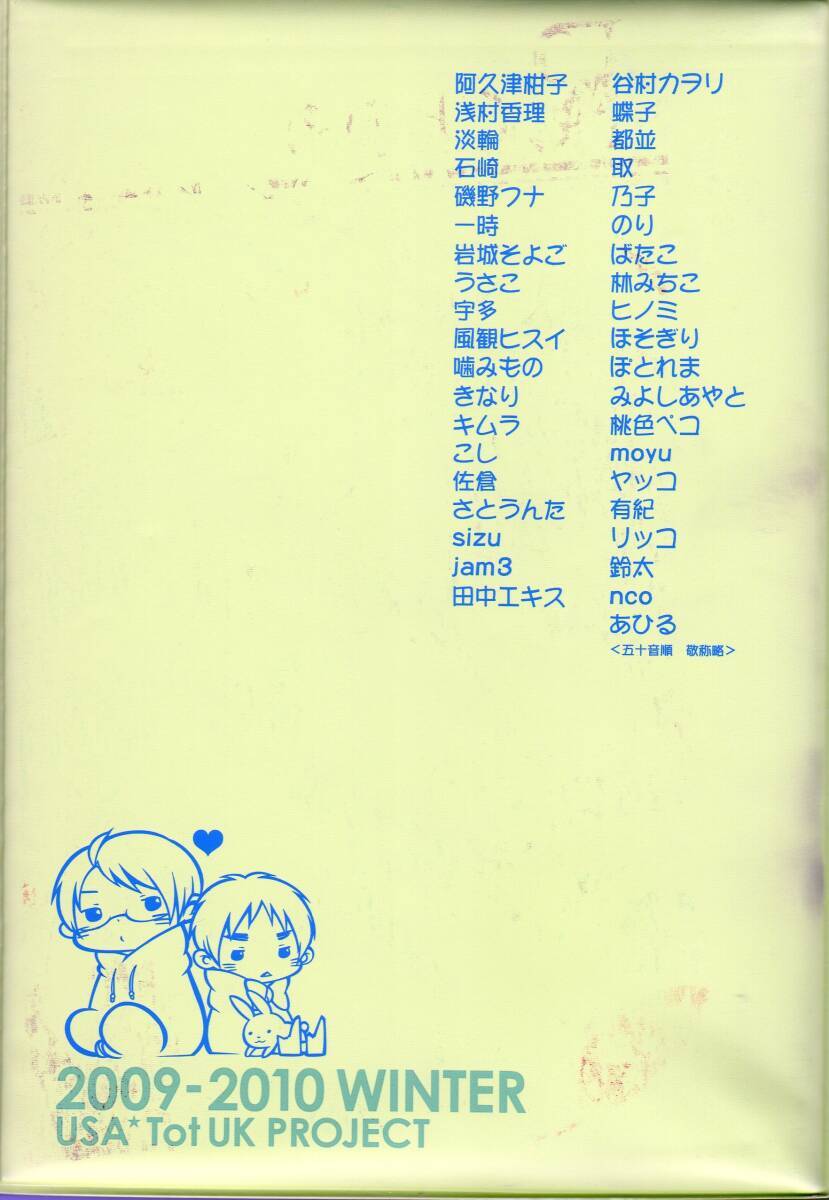 阿久津柑子
浅村香理
淡輪
石崎
磯野フナ
一時
岩城そよご
うさこ
宇多
風観ヒスイ
噛みもの
きなり
キムラ
こし
佐倉
さとうんた
sizu
jam3
田中エキス
谷村カヲリ
蝶子
都並
取
乃子
のり
ばたこ
林みちこ
ヒノミ
ほそぎり
ぽとれま
みよしあやと
桃色ペコ
moyu
ヤッコ
有紀
リッコ
鈴太
nco
あひる
<五十音順 敬称略>
2009-2010 WINTER
USA★Tot UK PROJECT